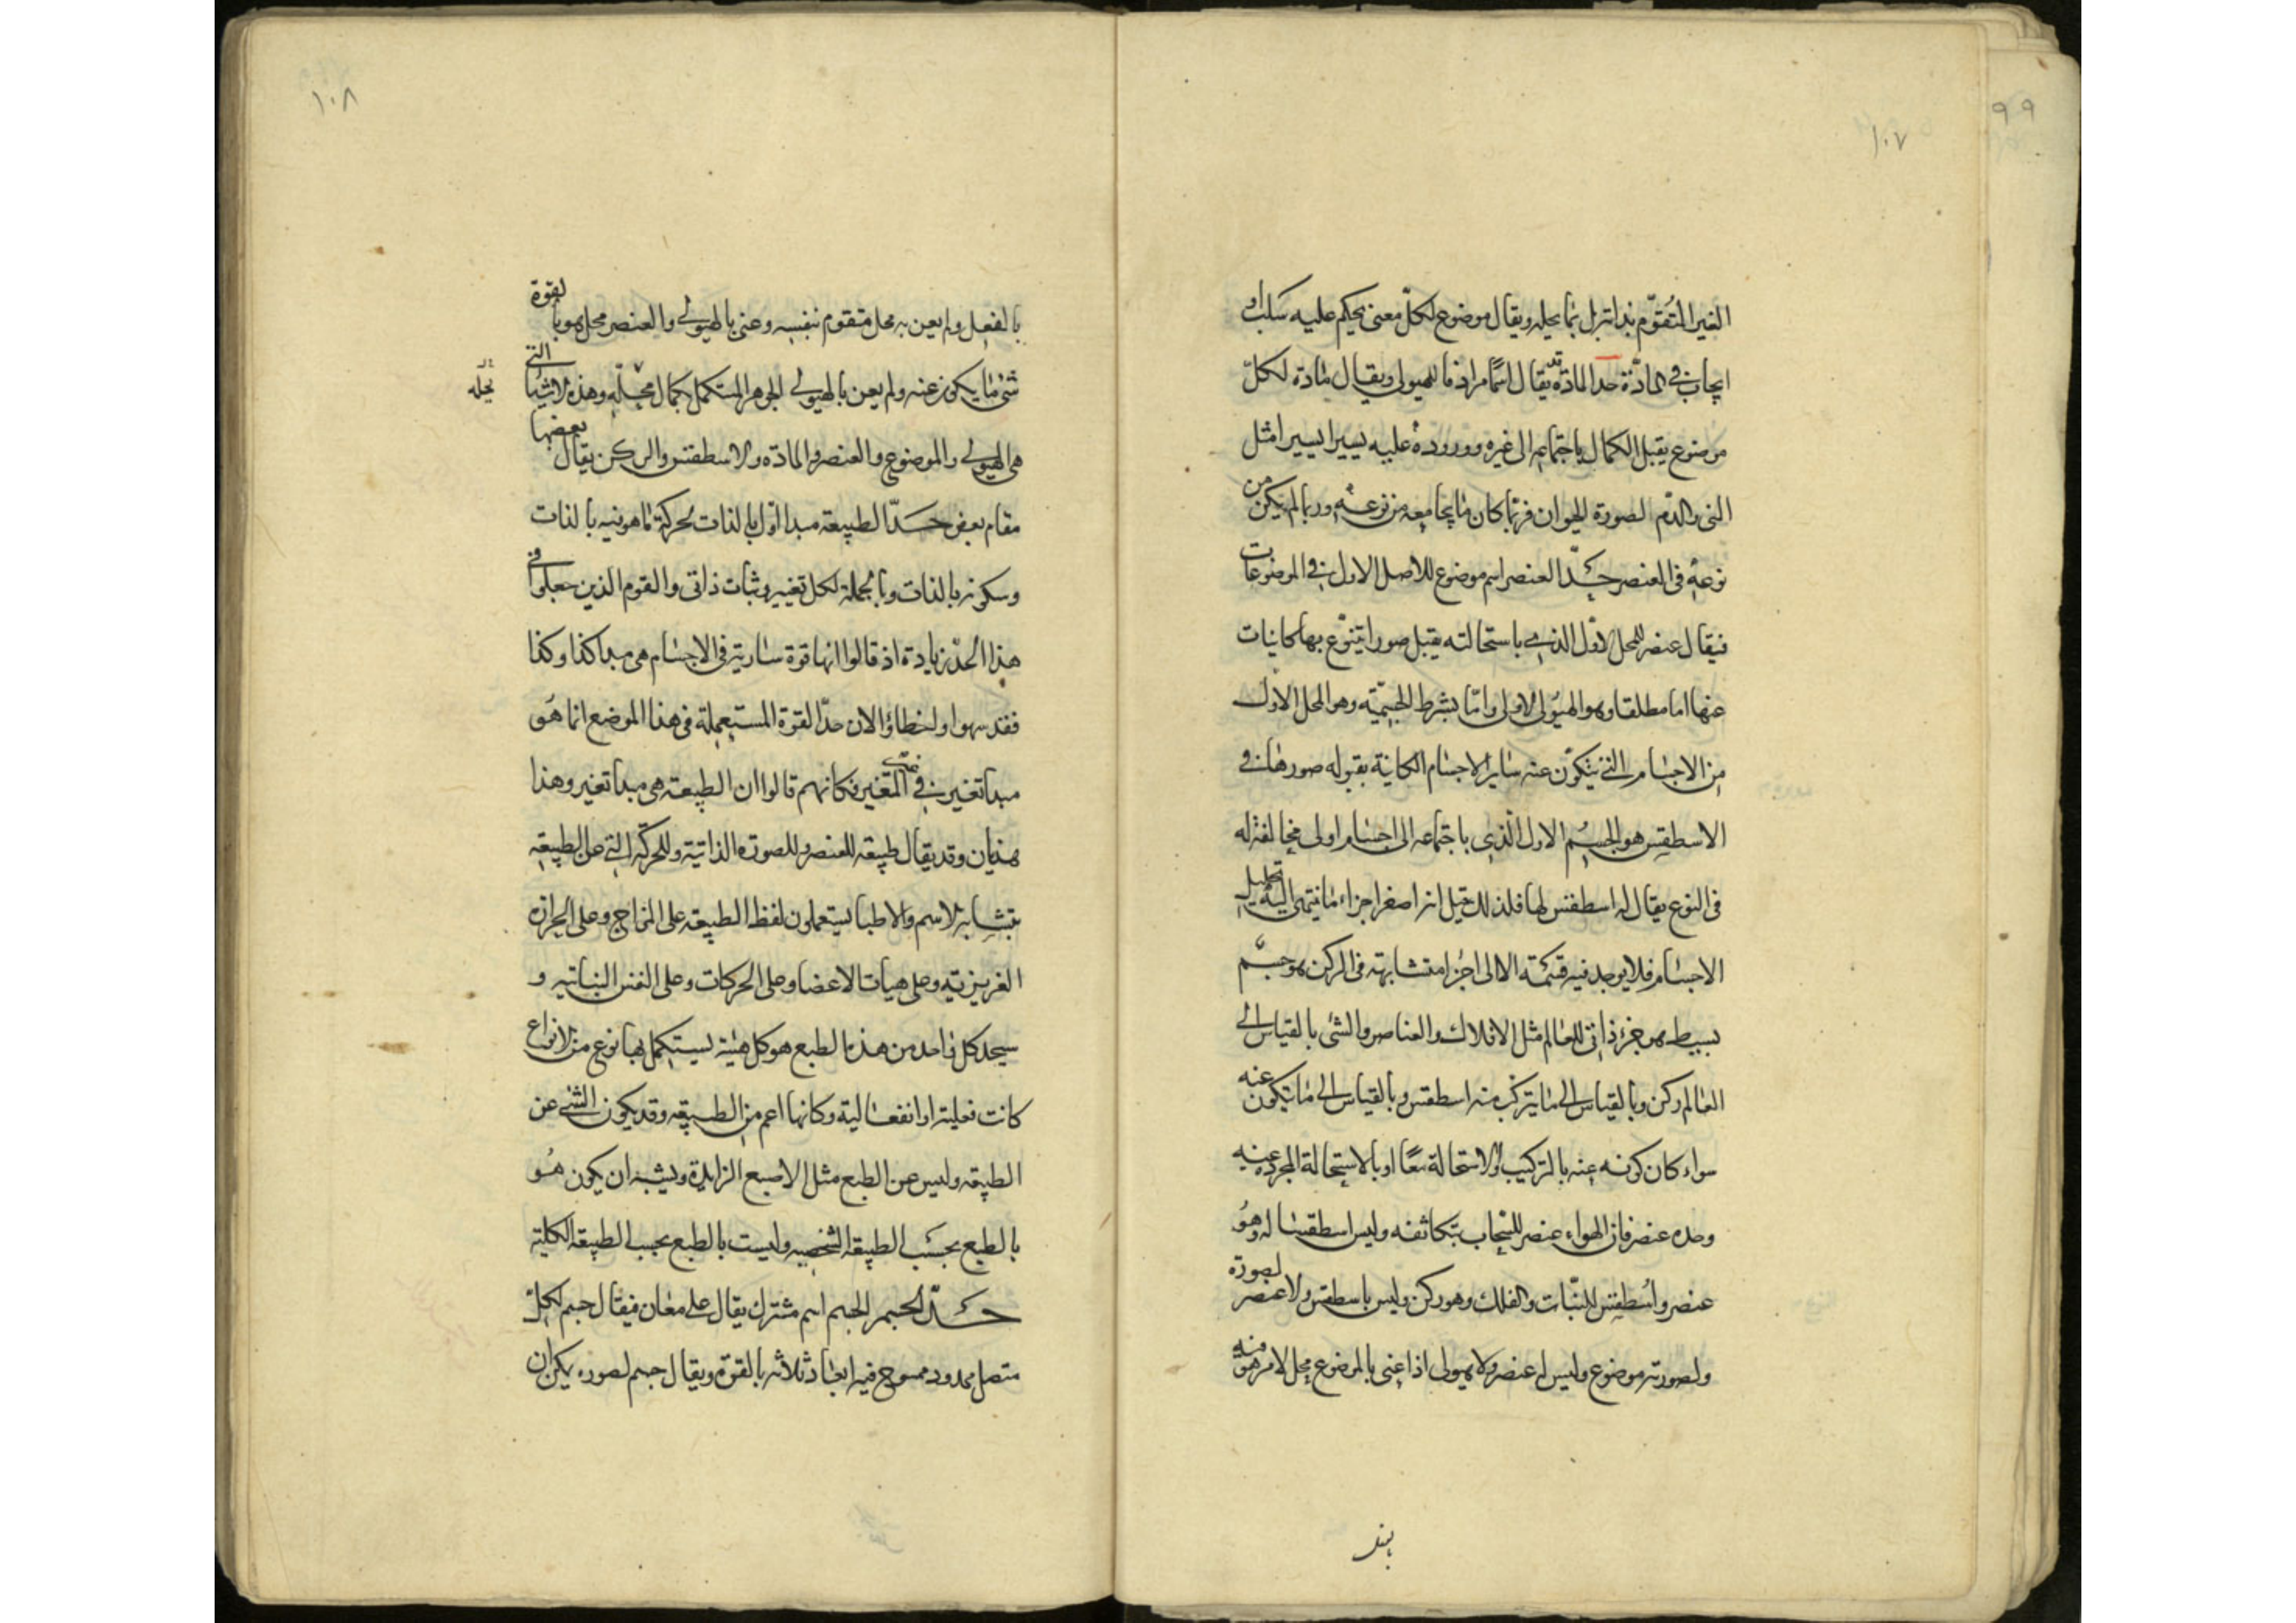 ٩٩
١٠٧
الغير المتقوّم بذاته بل بما يحله ويقال موضوع لكلّ معنى يحكم عليه سلب او
ايجاب في المادّة حد المادّة قد يقال اسمًا مرادفا للهيولى ويقال مادة لكلّ
موضوع يقبل الكمال باجتماعه الى غيره ووروده عليه يسيرا يسيرا مثل
المنى والدّم لصورة الحيوان فربّما كان ما يجامعه من نوعه وربما لم يكن من
نوعه في العنصر حدّ العنصر اسم موضوع للاصل الاول في الموضوعات
فيقال عنصر للمحل الاوّل الذى باستحالته يقبل صورا يتنوّع بها كاينات
عنها اما مطلقا وهو الهيولى الاولى واما بشرط الجسميّة وهو المحل الاول
من الاجسام التى يتكوّن عنه ساير الاجسام الكاينة بقبوله صورها في
الاسطقس هو الجسم الاول الذي باجتماعه الى اجسام اولى مخالفة له
فى النوع يقال له اسطقس لها فلذلك قيل انه اصغر اجزاء ما ينتهى اليه تحليل
الاجسام فلا يوجد فيه قسمته الا الى اجزا متشابهة فى الركن هو جسم
بسيط هو جزء ذاتى للعالم مثل الافلاك والعناصر والشى بالقياس الى
العالم ركن وبالقياس الى ما يتركب منه اسطقس وبالقياس الى ما يتكون عنه
سواء كان كونه عنه بالتركيب والاستحالة معًا او بالاستحالة المجردة عنه
وحده عنصر فان الهواء عنصر للسّحاب بتكاثفه وليس اسطقسا له وهو
عنصر واسطقس للنبّات والفلك وهو ركن وليس باسطقس ولا عنصر لصورة
ولصورته موضوع وليس له عنصر ولا هيولى اذا عنى بالموضوع محل لامر هو فيه
١٠٨
بالفعل ولم يعن به محل متقوم بنفسه وعنى بالهيولى والعنصر محل هو بالقوة
شى ما يكون عنه ولم يعن بالهيولى الجوهر المستكمل بكمال محله وهذه الاشيا التى
يحله
هى الهيولى والموضوع والعنصر والمادة والاسطقس والركن يقال بعضها
مقام بعض حدّ الطبيعة مبدا اوّل بالذات لحركة ما هو فيه بالذات
وسكونه بالذات وبالجملة لكل تغيير وثبات ذاتى والقوم الذين جعلوا في
هذا الحدّ زيادة اذ قالوا انها قوة سارية فى الاجسام هى مبدا كذا وكذا
فقد سهوا واخطاؤا لان حدّ القوة المستعملة فى هذا الموضع انما هو
مبدا تغير في المتغير فكانهم قالوا ان الطبيعة هى مبدا تغير وهذا
هذيان وقد يقال طبيعة للعنصر وللصورة الذاتية وللحركة التى عن الطبيعة
بتشابه الاسم والاطبا يستعملون لفظ الطبيعة على المزاج وعلى الحرارة
الغريزية وعلى هيات الاعضا وعلى الحركات وعلى النفس النباتية و
سيحد كل واحد من هذه الطبع هو كل هيئة يستكمل بها نوع من الانواع
كانت فعلية او انفعالية وكانها اعم من الطبيعة وقد يكون الشئ عن
الطبيعة وليس عن الطبع مثل الاصبع الزايدة ويشبه ان يكون هو
بالطبع بحسب الطبيعة الشخصية وليست بالطبع بحسب الطبيعة الكلية
حدّ الجسم الجسم اسم مشترك يقال على معان فيقال جسم لكلّ
متصل محدود ممسوح فيه ابعاد ثلاثه بالقوّة ويقال جسم لصورة يمكن ان